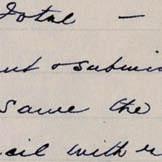 Total —
& submi
same the
cil with